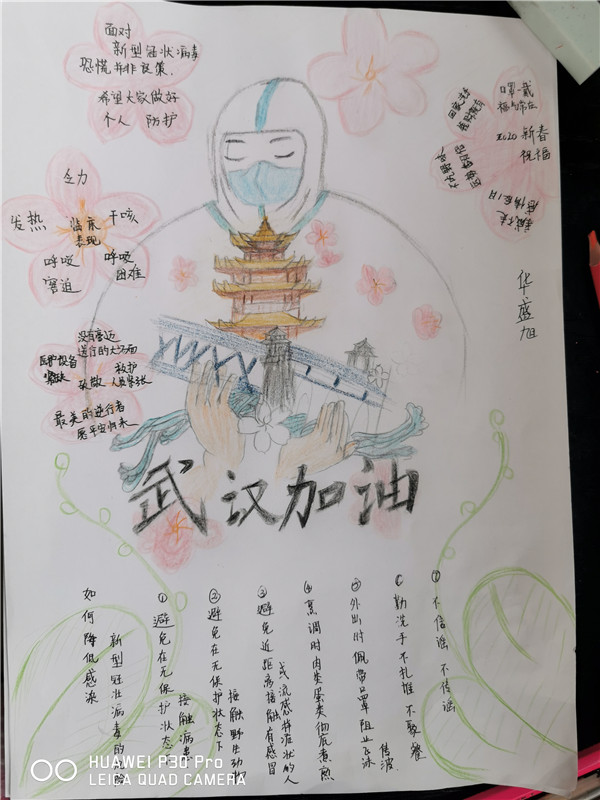 面对
新型冠状病毒
恐慌并非良策.
希望大家做好
个人 防护
口罩一戴
福气常在
2020 新春
祝福
乏力
发热
临床
表现
干咳
呼吸
窘迫
呼吸
困难
华盛旭
医护设备
紧缺
致敬
救护
人员紧张
最美的逆行者
愿平安归来
武汉加油
如何降低感染
新型冠状病毒的危险
①避免在无保护状态
接触病毒
②避免在无保护状态下
接触野生动物
③避免近距离接触有感冒
或流感样症状的人
④烹调时肉类蛋类彻底煮熟
⑤外出时佩带口罩阻止飞沫
传波
⑥勤洗手不扎堆不聚餐
⑦不信谣不传谣
HUAWEI P30 Pro
LEICA QUAD CAMERA